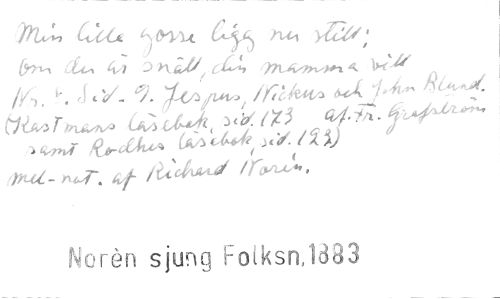 Min lille gosse ligg nu still;
om du är snäll, din mamma vill
Nr. 1. Sid. 9. Jespers, Nickus och John Blund.
(Kastmans läsebok, sid. 173 af Fr. Grafström
samt Rodhes läsebok, sid. 193)
mel-not. af Richard Norén.
Norèn sjung Folksn, 1883